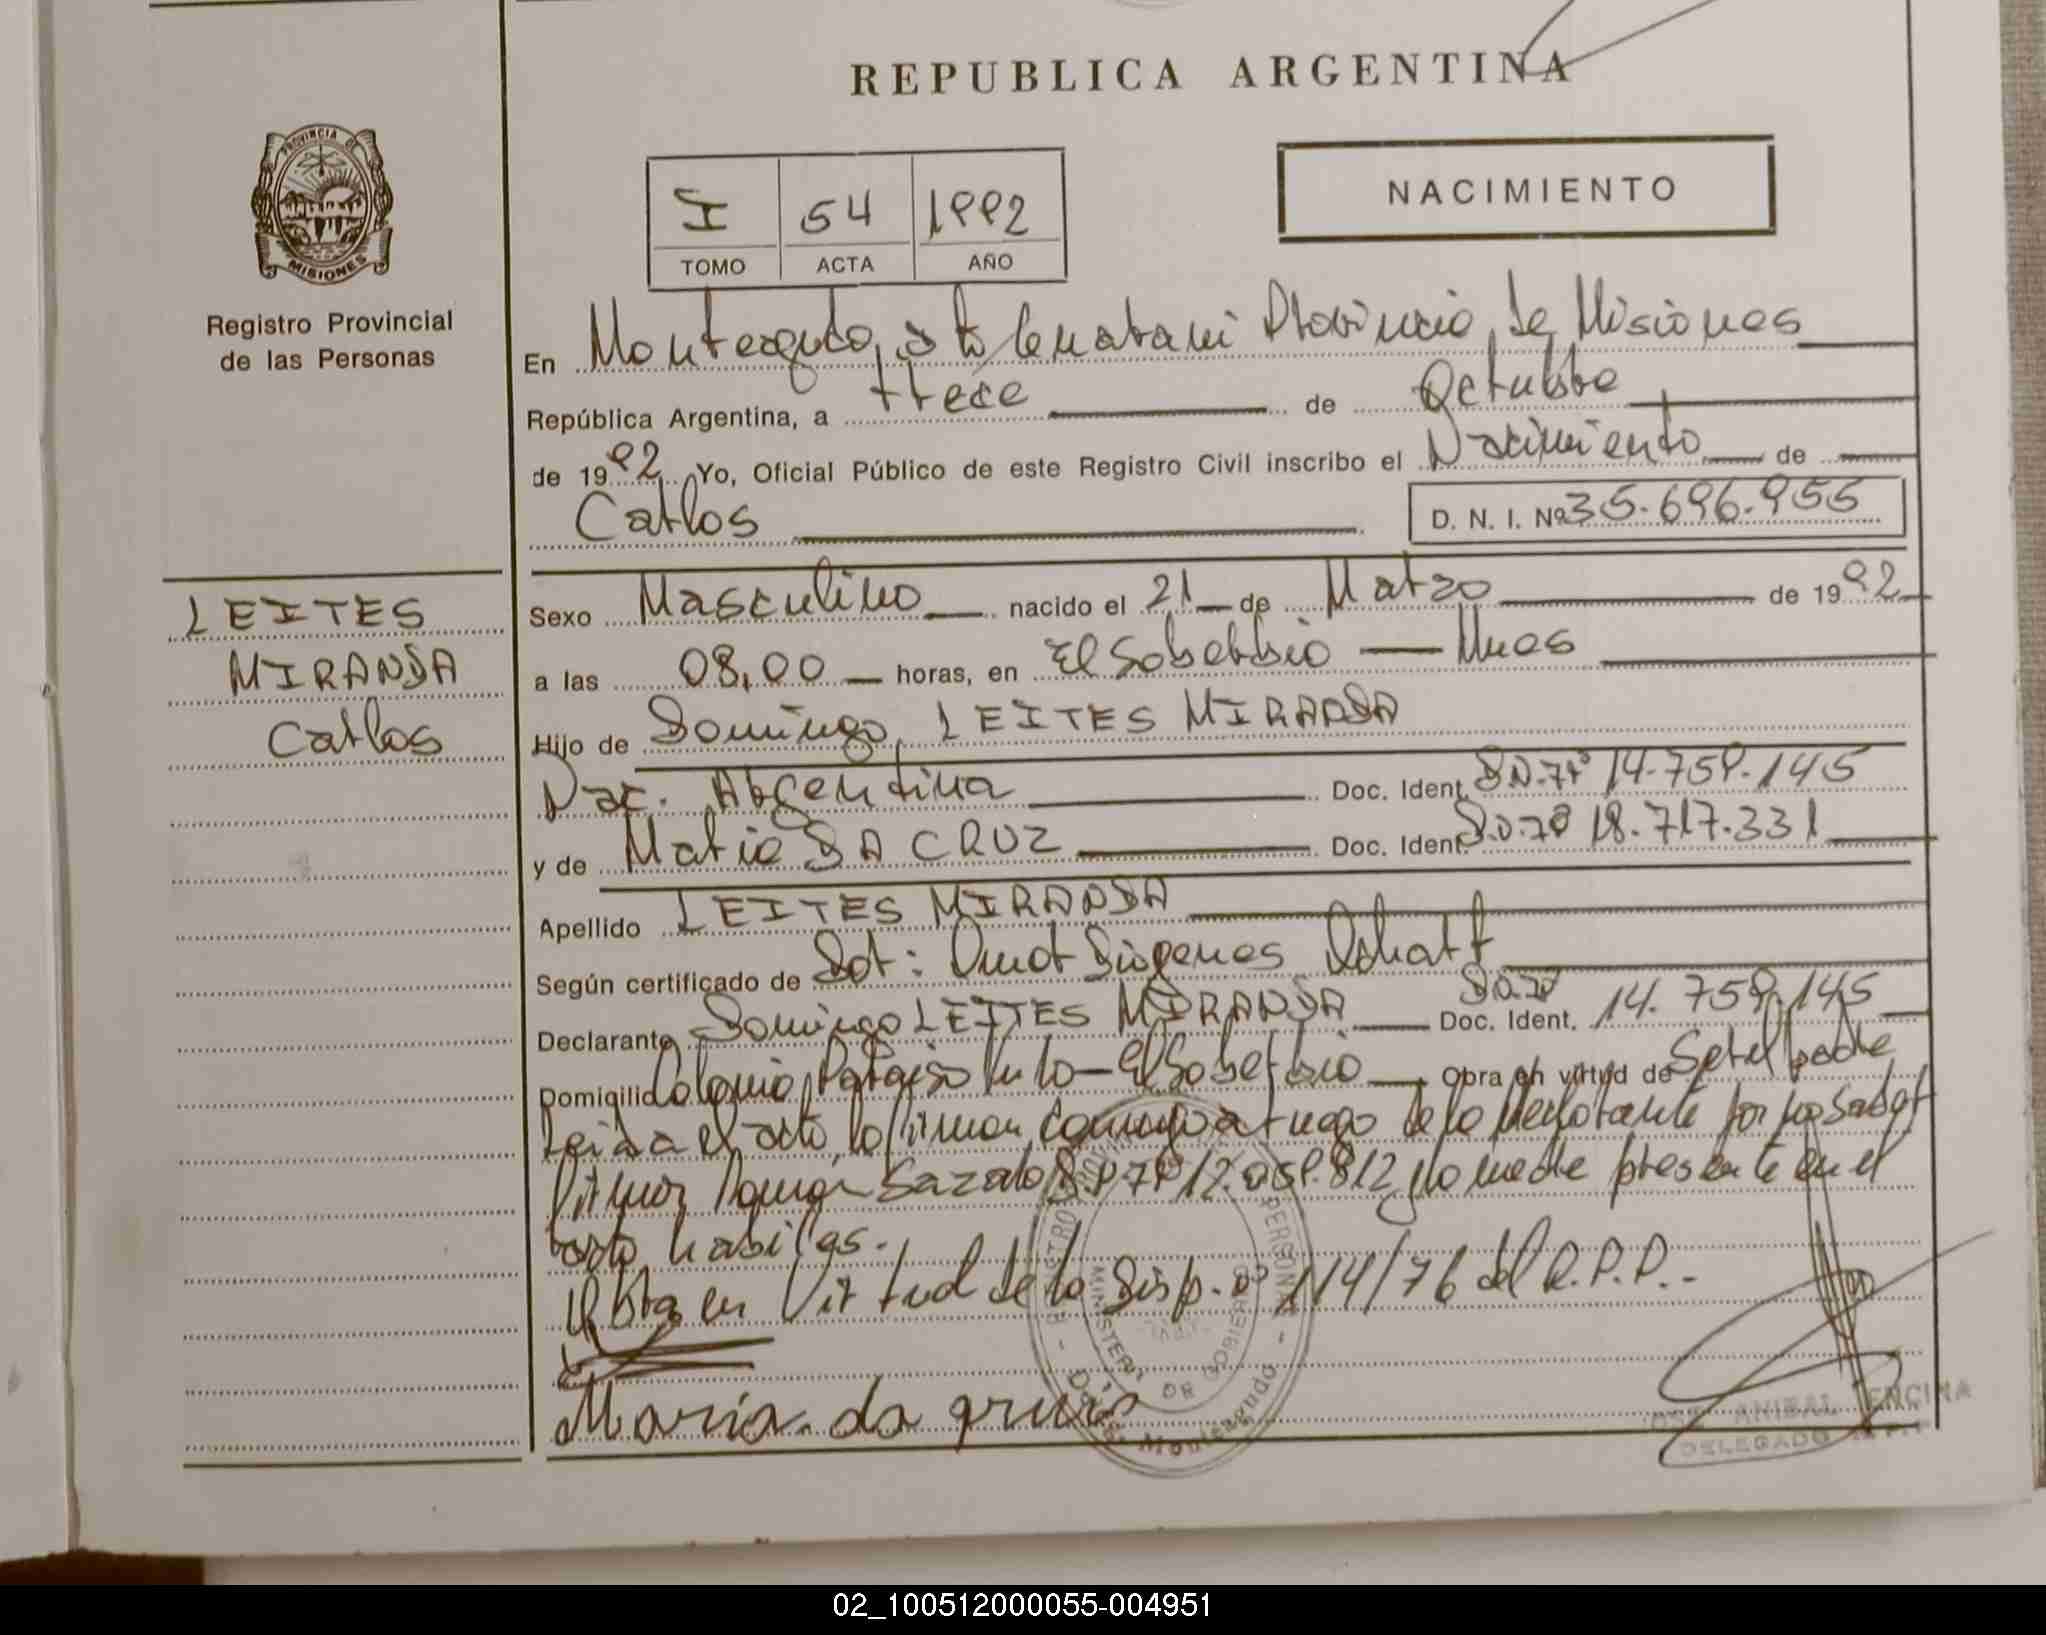 REPUBLICA ARGENTINA
PROVINCIA DE
MISIONES
Registro Provincial
de las Personas
I 54 1992
TOMO ACTA AÑO
NACIMIENTO
En Monteagudo, Guarani Provincia de Misiones
República Argentina, a trece de Octubre
de 1992 Yo, Oficial Público de este Registro Civil inscribo el Nacimiento de
Carlos D. N. I. Nº 35.696.955
LEITES
MIRANDA
Carlos
Sexo Masculino nacido el 21 de Marzo de 1992
a las 08,00 horas, en El Soberbio — Mnes
Hijo de Domingo LEITES MIRANDA
Nac. Argentina Doc. Ident. 14.759.145
y de Maria DA CRUZ Doc. Ident. 18.717.331
Apellido LEITES MIRANDA
Según certificado de Dot: Omar Diogenes
Declarante Domingo LEITES MIRANDA Doc. Ident. 14.759.145
Domicilio Colonia Paraiso El Soberbio Obra en virtud de Ser el padre
Leida el acta, la firman conmigo a ruego de la declarante por no saber
firmar Ramon la madre presente en el
acto
Obra en Virtud de la Disp. nº 114/76 del R.P.P.-
Maria da
REGISTRO PERSONAS
MINISTERIO DE GOBIERNO
Monteagudo
ANIBAL ENCINA
DELEGADO
02_100512000055-004951